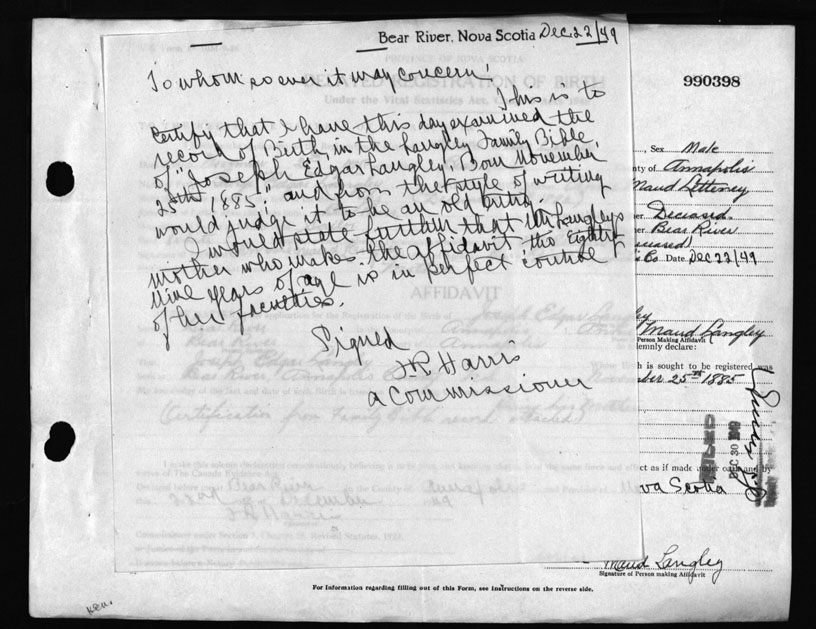 Bear River, Nova Scotia Dec 22/49
To whom so ever it may concern;
This is to
certify that I have this day examined the
record of Birth, in the Langley Family Bible
of "Joseph Edgar Langley, Born November
25th 1885." and from the style of writing
would judge it to be an old entry.
I would state further that Mr Langleys
mother who makes the affidavit, tho Eighty
Nine years of age is in perfect control
of her faculties.
Signed
J R Harris
a Commissioner
990398
, Sex Male
nty of Annapolis
Maud Litteney
Deceased.
er Bear River
eceased)
Co. Date Dec 22/49
PROVINCE OF NOVA SCOTIA
DELAYED REGISTRATION OF BIRTH
Under the Vital Statistics Act,
AFFIDAVIT
Joseph Edgar Langley
Bear River Annapolis
Maud Langley
Person Making Affidavit
lemnly declare:
h is sought to be registered was
mber 25th 1885
(Certification from Family Bible record attached)
FILED
DEC 30 1949
ect as if made under oath and by
Bear River Annapolis Nova Scotia
22nd December 49
J R Harris
Maud Langley
Signature of Person making Affidavit
For Information regarding filling out of this Form, see Instructions on the reverse side.